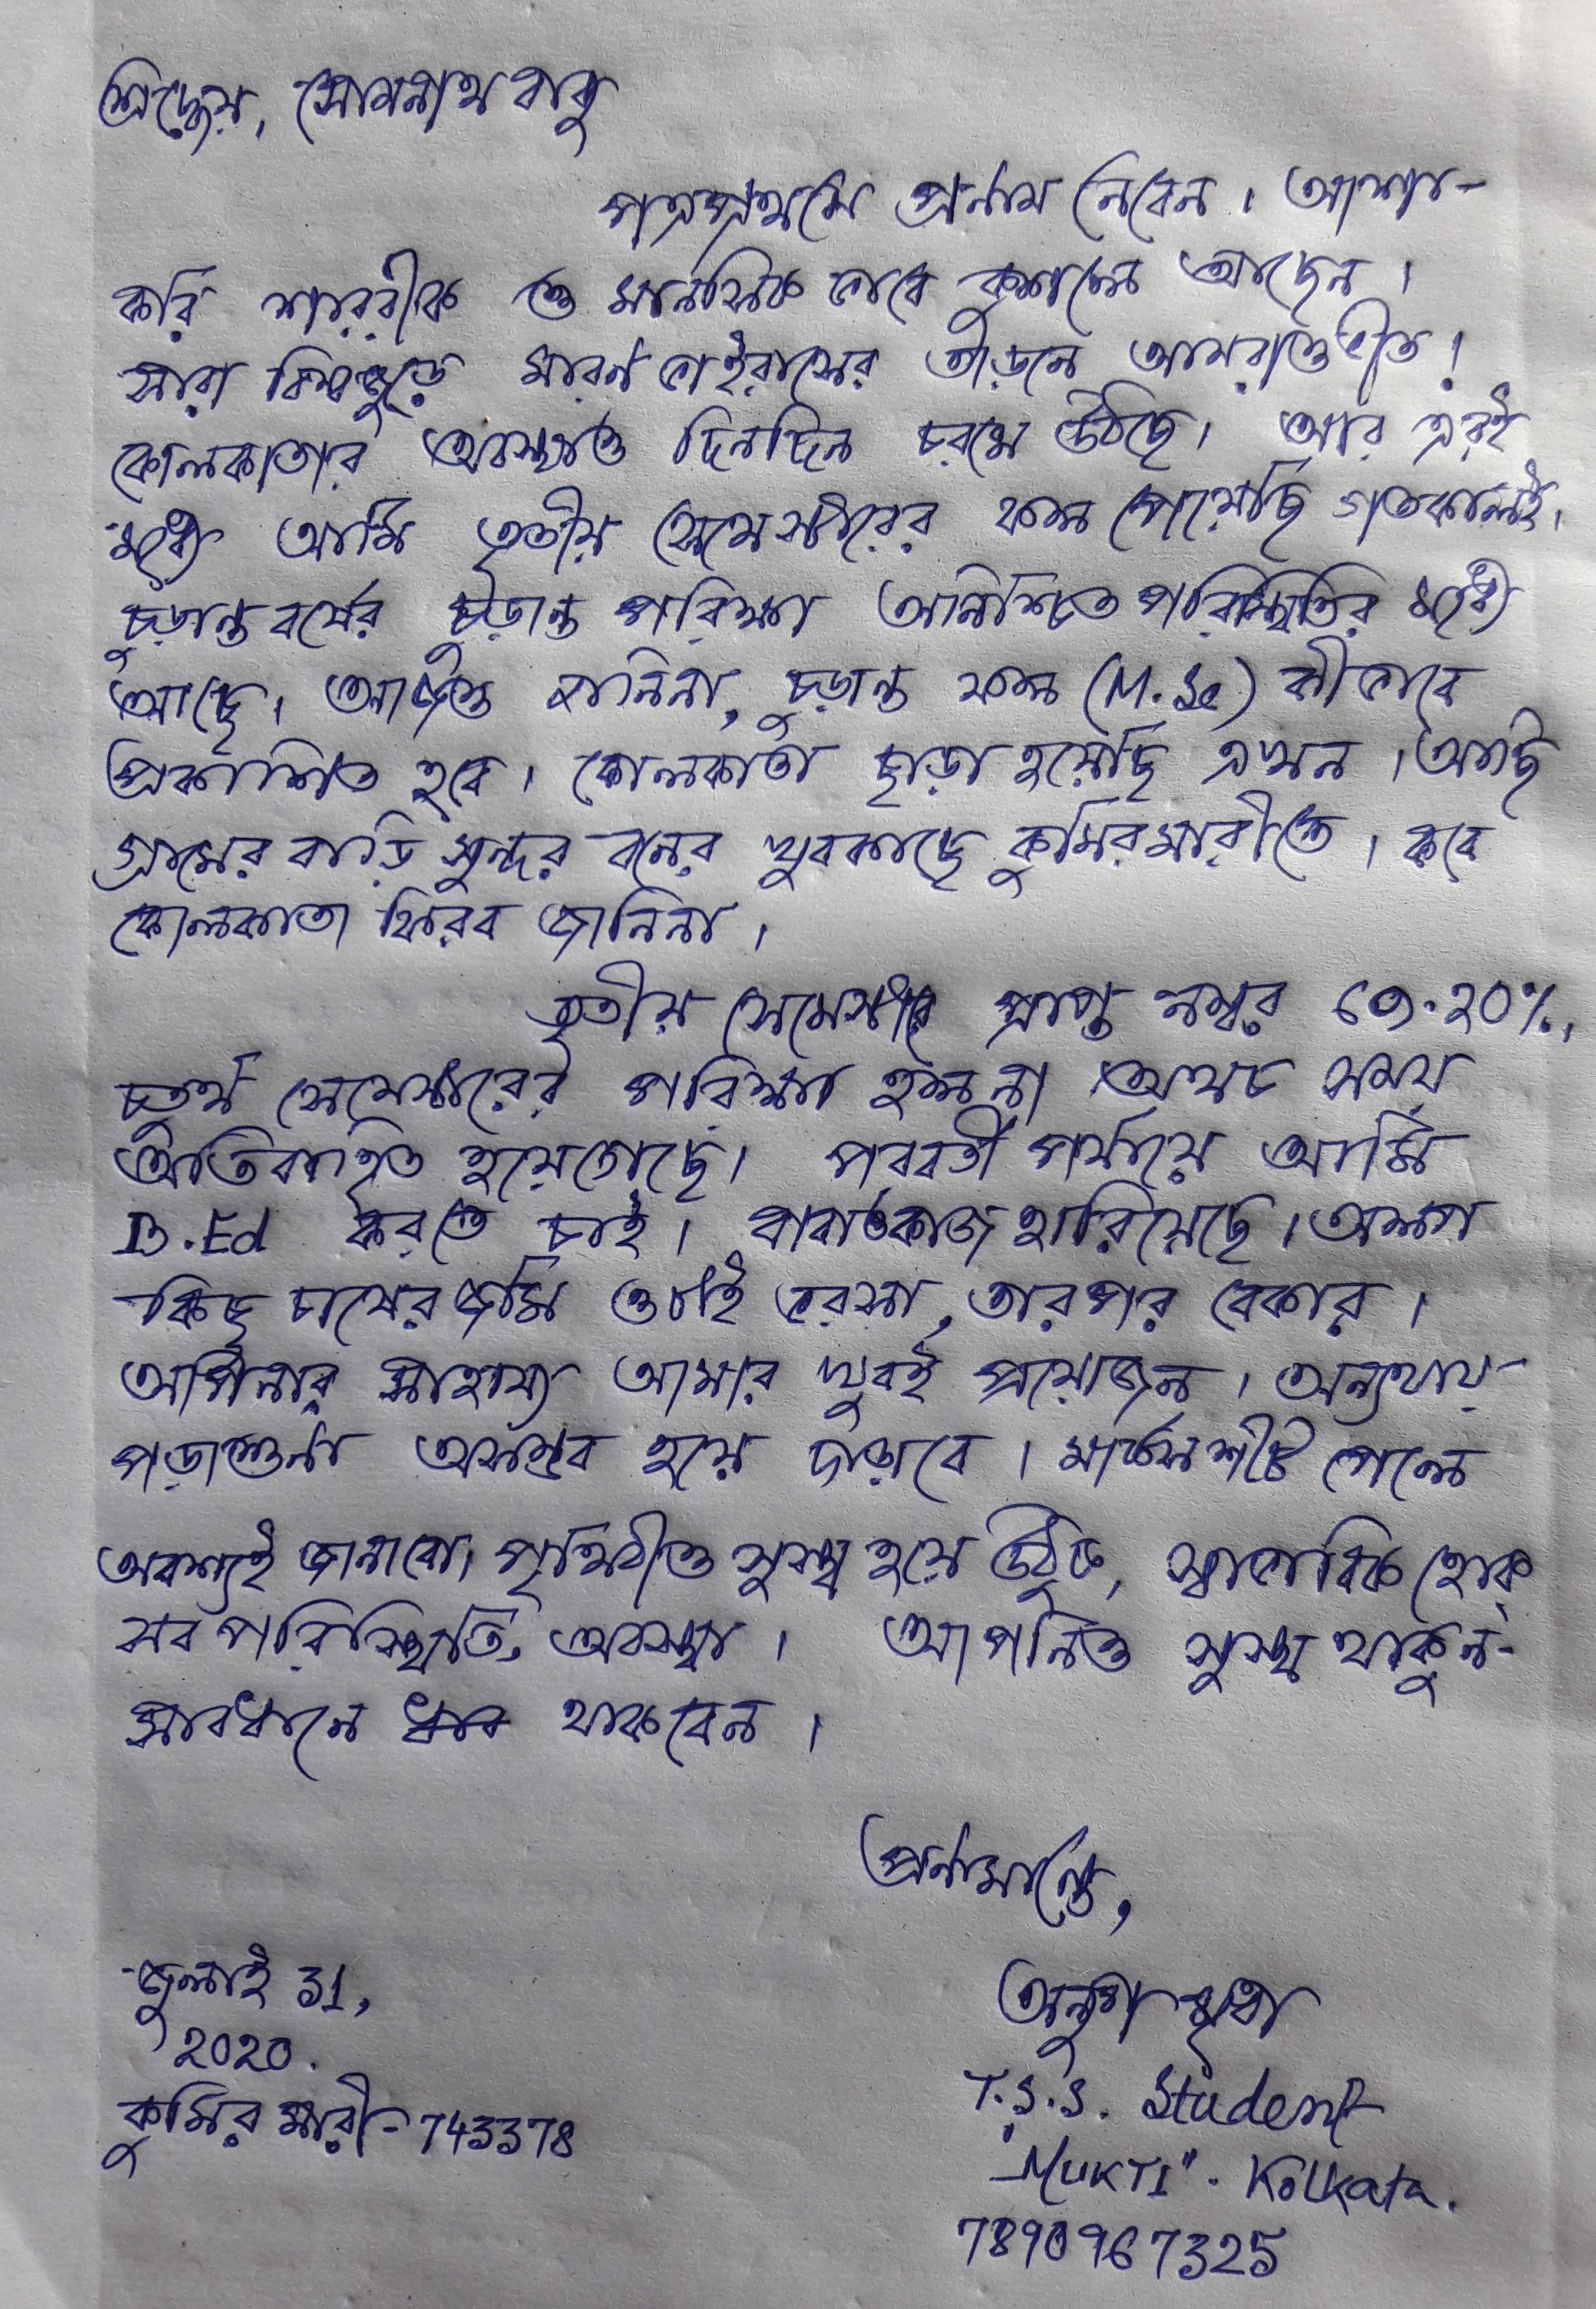 শ্রদ্ধেয়, সোমনাথ বাবু
পত্রপ্রথমে প্রনাম নেবেন। আশা-
করি শারীরীক ও মানসিক ভাবে কুশলে আছেন।
সারা বিশ্বজুড়ে মারণ ভাইরাসের তাড়নে আমরাও ভীত!
কোলকাতার অবস্থাও দিনদিন চরমে উঠছে। আর এরই
মধ্যে আমি তৃতীয় সেমেস্টারের ফল পেয়েছি গতকালই।
চূড়ান্ত বর্ষের চূড়ান্ত পরিক্ষা অনিশ্চিত পরিস্থিতির মধ্যে
আছে। আজও জানিনা, চূড়ান্ত ফল (M.Sc) কীভাবে
প্রকাশিত হবে। কোলকাতা ছাড়া হয়েছি এখন। আছি
গ্রামের বাড়ি সুন্দর বনের খুবকাছে কুমিরমারীতে। কবে
কোলকাতা ফিরব জানিনা।
তৃতীয় সেমেস্টারে প্রাপ্ত নম্বর 69.20%,
চতুর্থ সেমেস্টারের পরিক্ষা হলনা অথচ সময়
অতিবাহিত হয়েগেছে। পরবর্তী পর্যায়ে আমি
B.Ed করতে চাই। বাবাওকাজ হারিয়েছে। অল্প
কিছু চাষের জমি ওটাই ভরসা, তারপর বেকার।
আপনার সাহায্য আমার খুবই প্রয়োজন। অন্যথায়
পড়াশুনা অসম্ভব হয়ে দাঁড়াবে। মার্কসশীট পেলে
অবশ্যই জানাবো। পৃথিবীও সুস্থ হয়ে উঠুক, স্বাভাবিক হোক
সব পরিস্থিতি, অবস্থা। আপনিও সুস্থ থাকুন-
সাবধানে থাকবেন।
প্রনামান্তে,
জুলাই 31,
2020.
কুমিরমারী-743378
অনুপ মৃধা
T.S.S. Student
"MUKTI". Kolkata.
7890967325